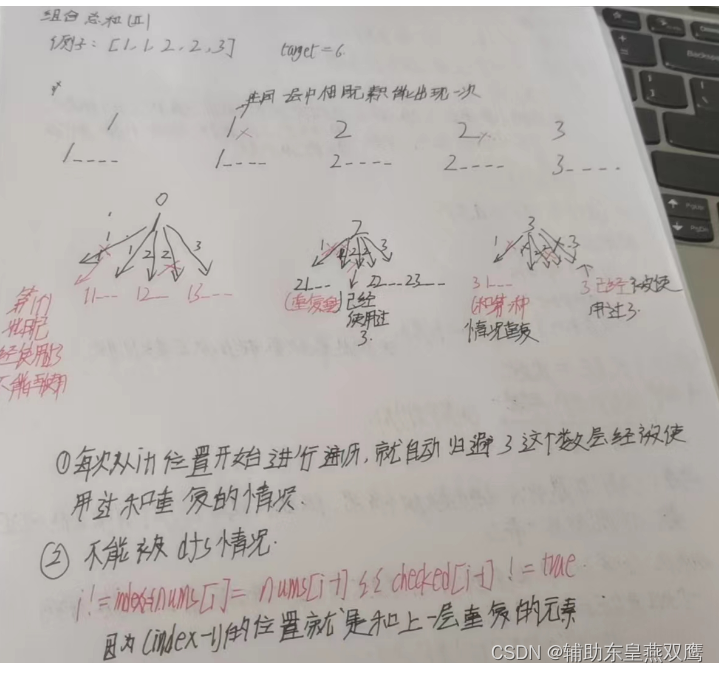 组合总和(II)
例子: [1,1,2,2,3] target=6
在同一层中相同元素只能出现一次
1 1× 2 2× 3
1---- 1---- 2---- 2---- 3----
0 2 3
1 1 2 2 3 1 1 2 2 3 1
11-- 12-- 13-- 21-- 22--- 23--- 31-- 3已经被使
用过了.
(重复) 已经
使用过
了.
(和第一种
情况重复
第1个
1已
经使用了
不能再使用
①每次从i+1位置开始进行遍历,就自动归避了这个数层经被使
用过和重复的情况.
② 不能被dfs情况.
i!=index&&nums[i]==nums[i-1]&&checked[i-1]!=true
因为(index-1)的位置就是和上一层重复的元素
CSDN @辅助东皇燕双鹰